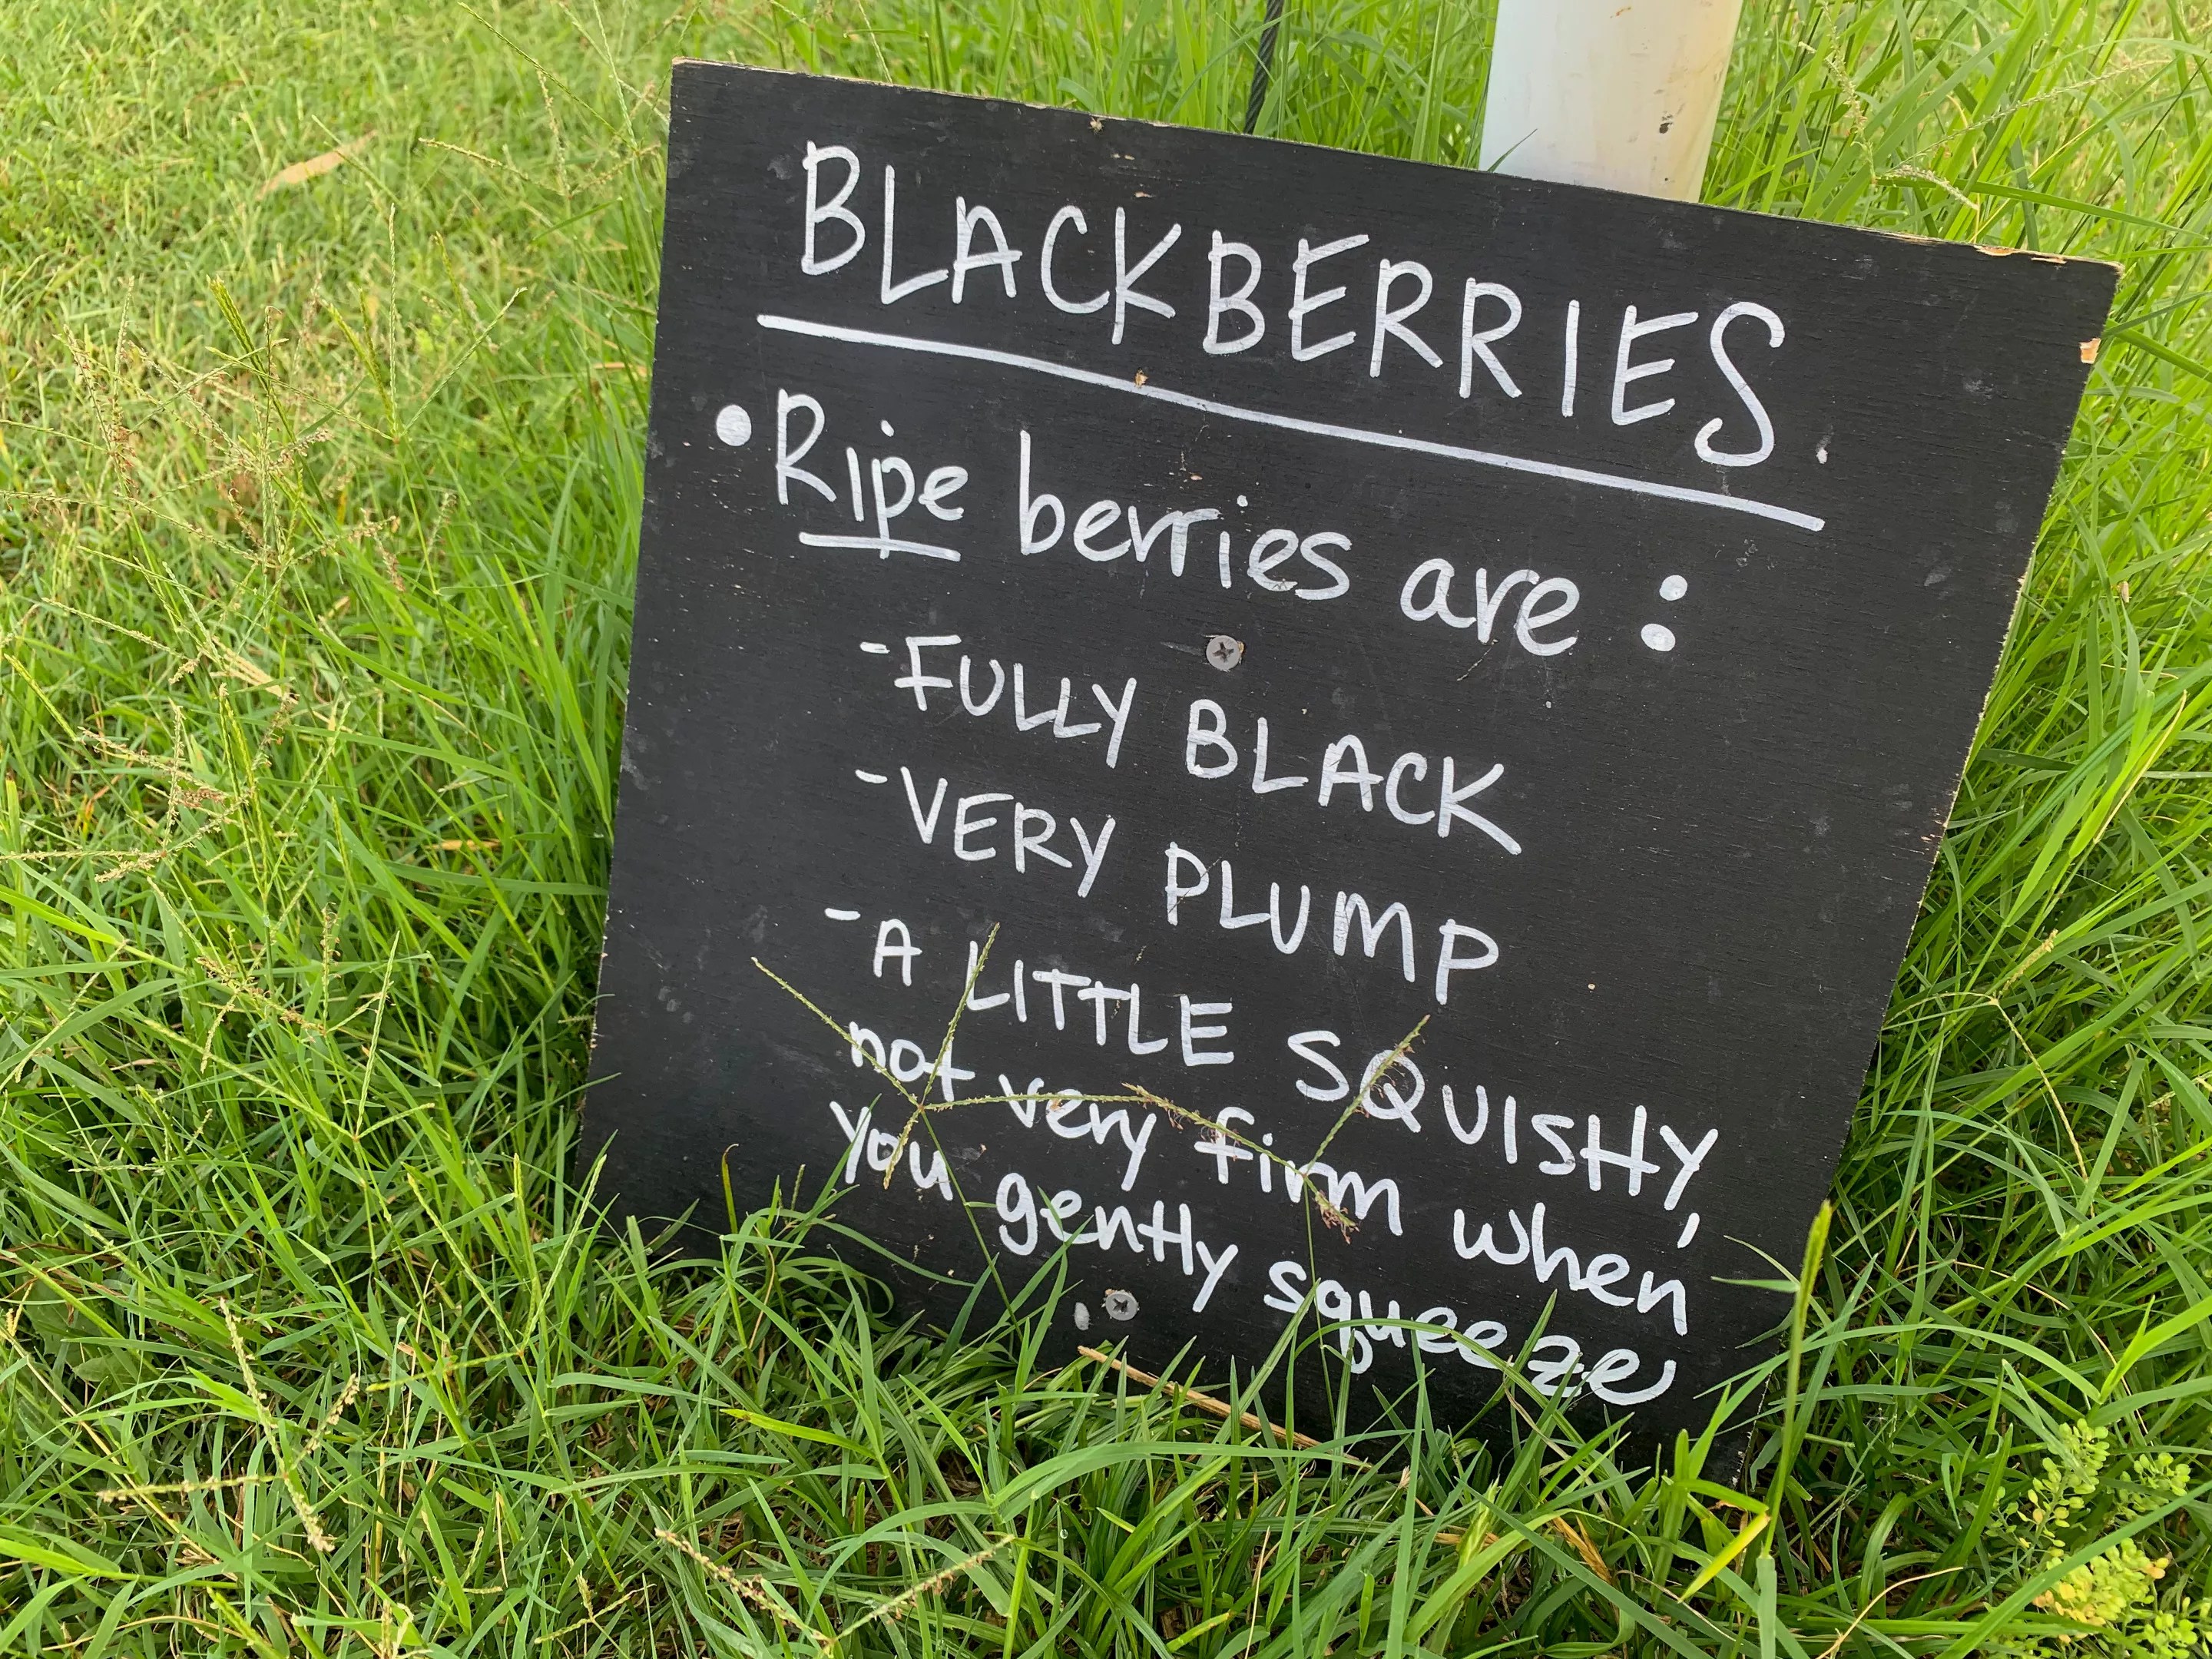 BLACKBERRIES.
• Ripe berries are :
- FULLY BLACK
- VERY PLUMP
- A LITTLE SQUISHY,
not very firm when
you gently squeeze